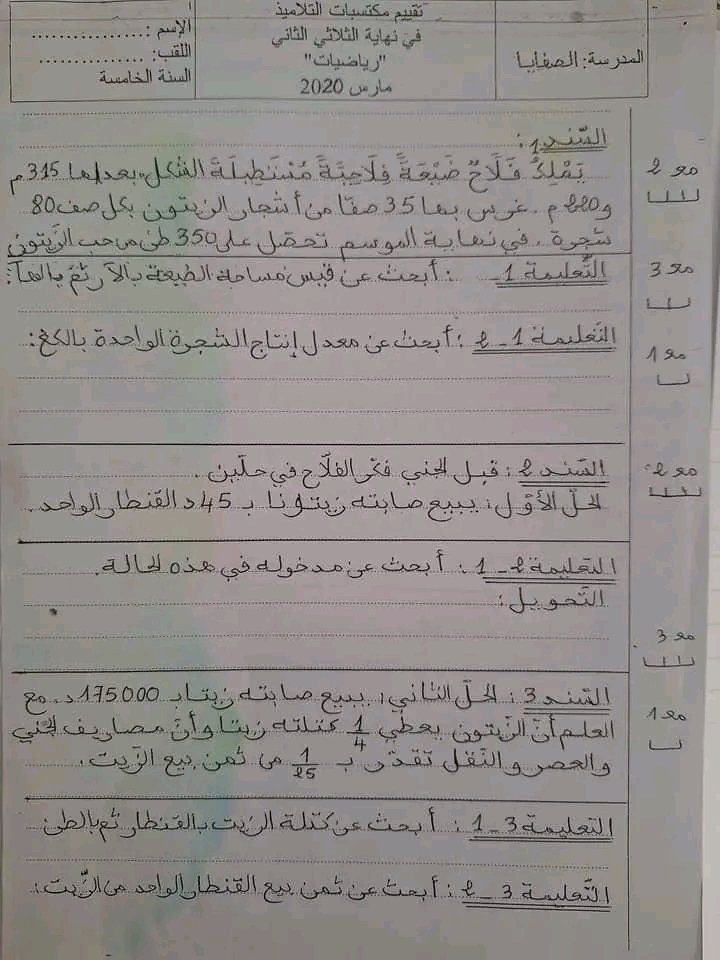 تقييم مكتسبات التلاميذ
في نهاية الثلاثي الثاني
"رياضيات"
مارس 2020
الإسم : ................
اللقب: ..............
السنة الخامسة
المدرسة: الصفايا
السّند 1 :
يَمْلِكُ فَلَّاحٌ ضَيْعَةً فِلَاحِيَّةً مُسْتَطِيلَةَ الشّكل، بعداها 315 م
و 220 م. غرس بها 35 صفّا من أشجار الزيتون بكلّ صف 80
شجرة. في نهاية الموسم تحصّل على 350 طن من حب الزّيتون
التّعليمة 1 - : أبحث عن قيس مساحة الضّيعة بالآر ثمّ بالهآ:
التّعليمة 1 - 2 : أبحث عن معدل إنتاج الشجرة الواحدة بالكغ:
السّند 2 : قبل الجني فكّر الفلّاح في حلّين.
الحلّ الأوّل: يبيع صابته زيتونا بـ 45 د القنطار الواحد.
التعليمة 2 - 1 : أبحث عن مدخوله في هذه الحالة.
التّحويل:
السّند 3 : الحلّ الثاني: يبيع صابته زيتا بـ 175.000 د. مع
العلم أنّ الزّيتون يعطي 1/4 كتلته زيتا وأنّ مصاريف الجني
والعصر والنّقل تقدّر بـ 1/25 من ثمن بيع الزّيت.
التعليمة 3 - 1 : أبحث عن كتلة الزيت بالقنطار ثم بالطن
التّعليمة 3 - 2 : أبحث عن ثمن بيع القنطار الواحد من الزّيت:
مع 2
مع 3
مع 1
مع 2
مع 3
مع 1